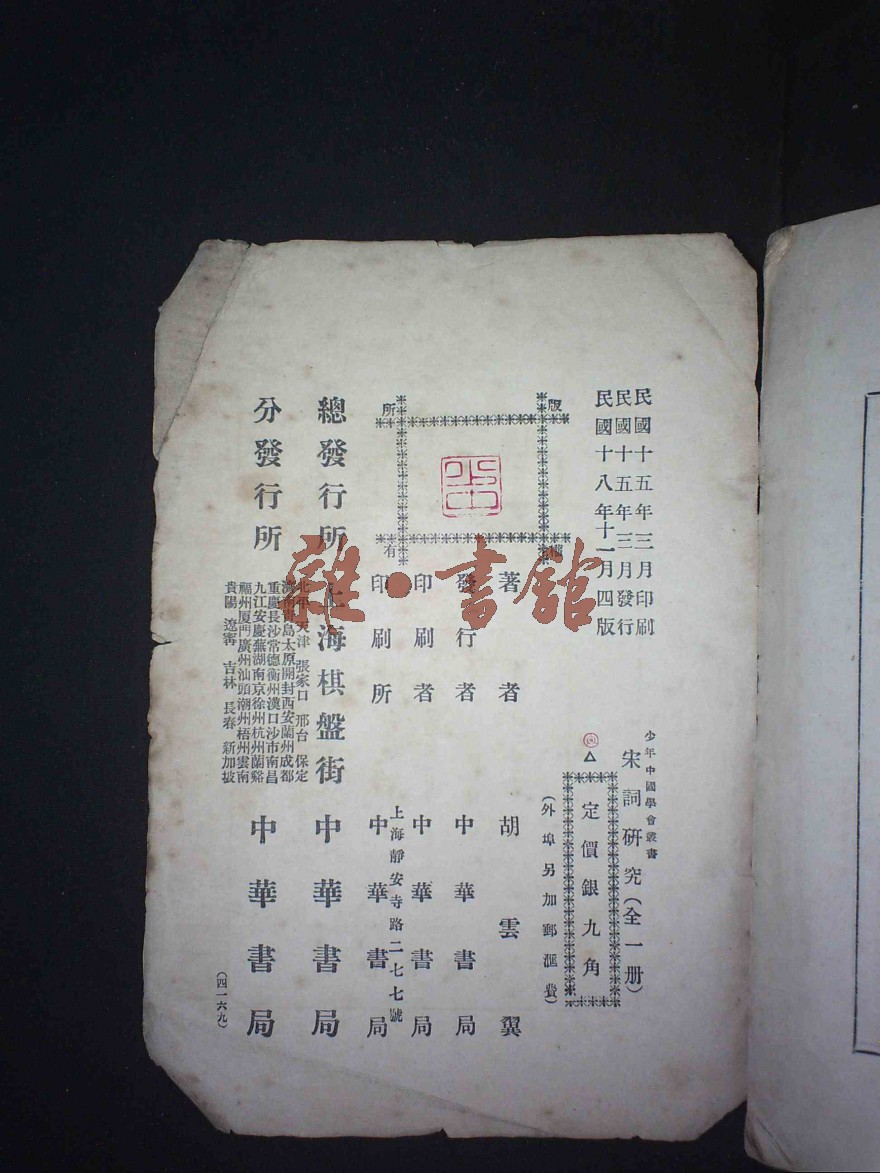 民國十五年三月印刷
民國十五年三月發行
民國十八年十一月四版
少年中國學會叢書
宋詞研究(全一册)
定價銀九角
(外埠另加郵滙費)
版權
所有
著者 胡雲翼
發行者 中華書局
印刷者 中華書局
上海靜安寺路二七七號
印刷所 中華書局
總發行所 上海棋盤街 中華書局
分發行所 中華書局
北平 天津 張家口 邢台 保定
濟南青島太原開封西安蘭州成都
重慶長沙常德衡州漢口沙市南昌
九江安慶蕪湖南京徐州杭州蘭谿
福州厦門廣州汕頭潮州梧州雲南
貴陽 遼寧 吉林 長春 新加坡
(四一六九)
雜·書館